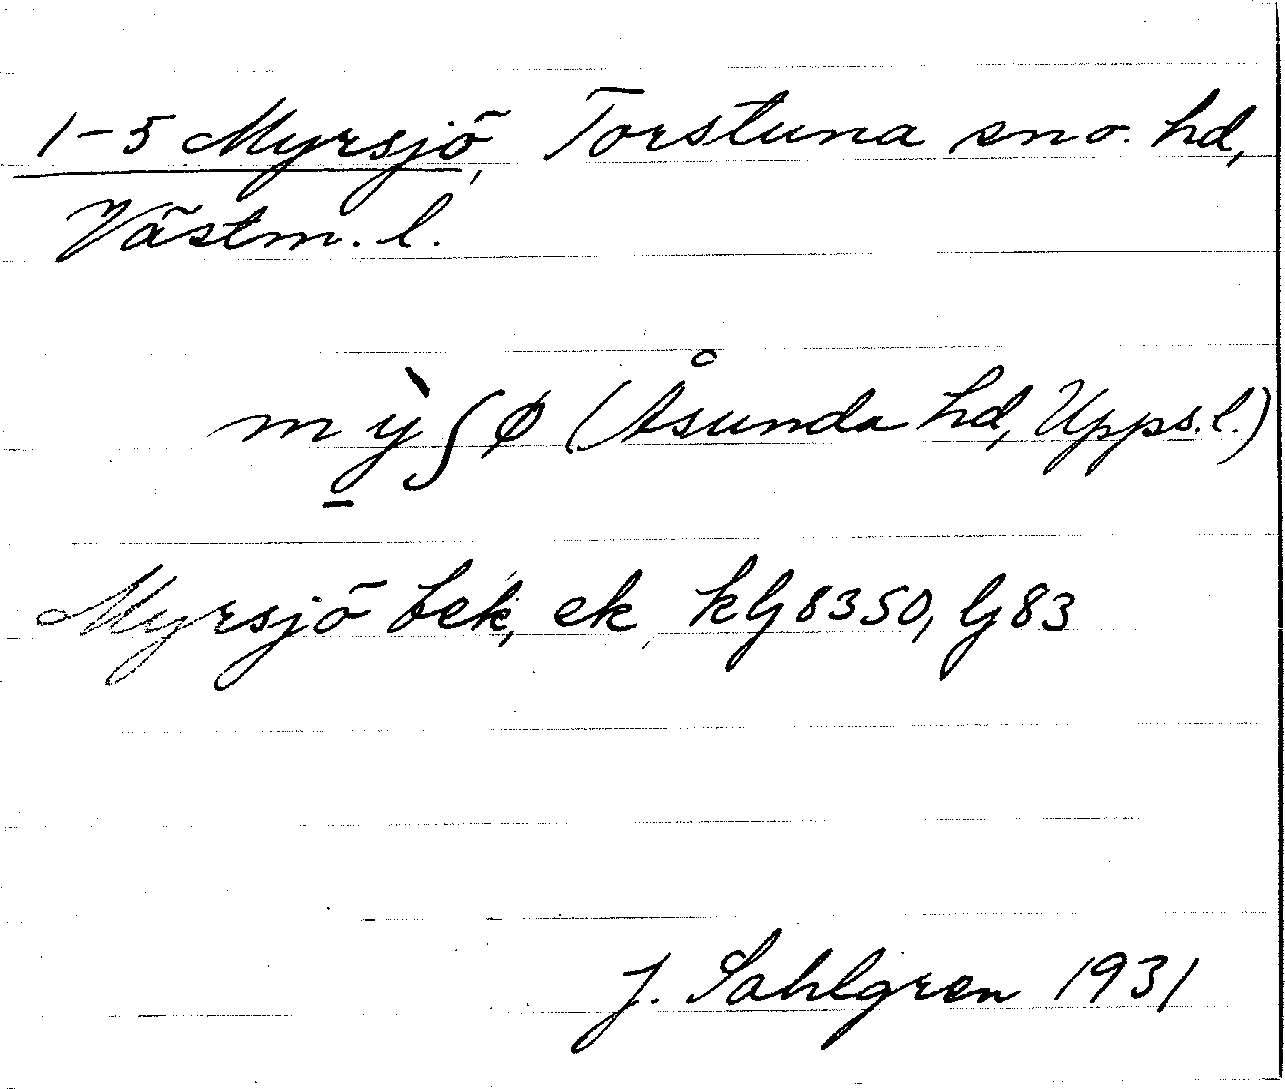 1-5 Myrsjö, Torstuna sn o. hd,
Västm. l.
mỳ̱ʃø (Åsunda hd, Upps. l.)
Myrsjö bek, ek, kG 8350, G 83
J. Sahlgren 1931